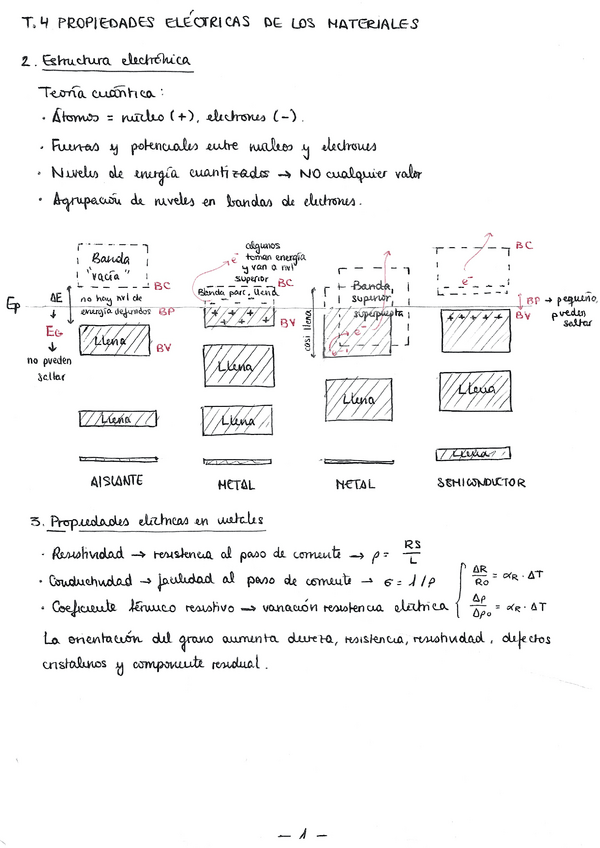 T.4 PROPIEDADES ELÉCTRICAS DE LOS MATERIALES
2. Estructura electrónica
Teoría cuántica:
· Átomos = núcleo (+), electrones (-).
· Fuerzas y potenciales entre núcleos y electrones
· Niveles de energía cuantizados → NO cualquier valor
· Agrupación de niveles en bandas de electrones.
Banda "vacía"
BC
EF
ΔE
↓
EG
↓
no pueden saltar
no hay nvl de energía definidos
BP
Llena
BV
Llena
AISLANTE
algunos e⁻ toman energía y van a nvl superior
BC
Banda parc. llena
+ + + +
+ + +
BV
Llena
Llena
METAL
casi llena
Banda superior superpuesta
e⁻
Llena
METAL
BC
e⁻
BP → pequeño, pueden saltar
BV
+ + + + +
Llena
Llena
SEMICONDUCTOR
3. Propiedades eléctricas en metales
· Resistividad → resistencia al paso de corriente → ρ = RS / L
· Conductividad → facilidad al paso de corriente → σ = 1/ρ
· Coeficiente térmico resistivo → variación resistencia eléctrica { ΔR / R0 = αR · ΔT
Δρ / Δρ0 = αR · ΔT
La orientación del grano aumenta dureza, resistencia, resistividad, defectos
cristalinos y componente residual.
- 1 -